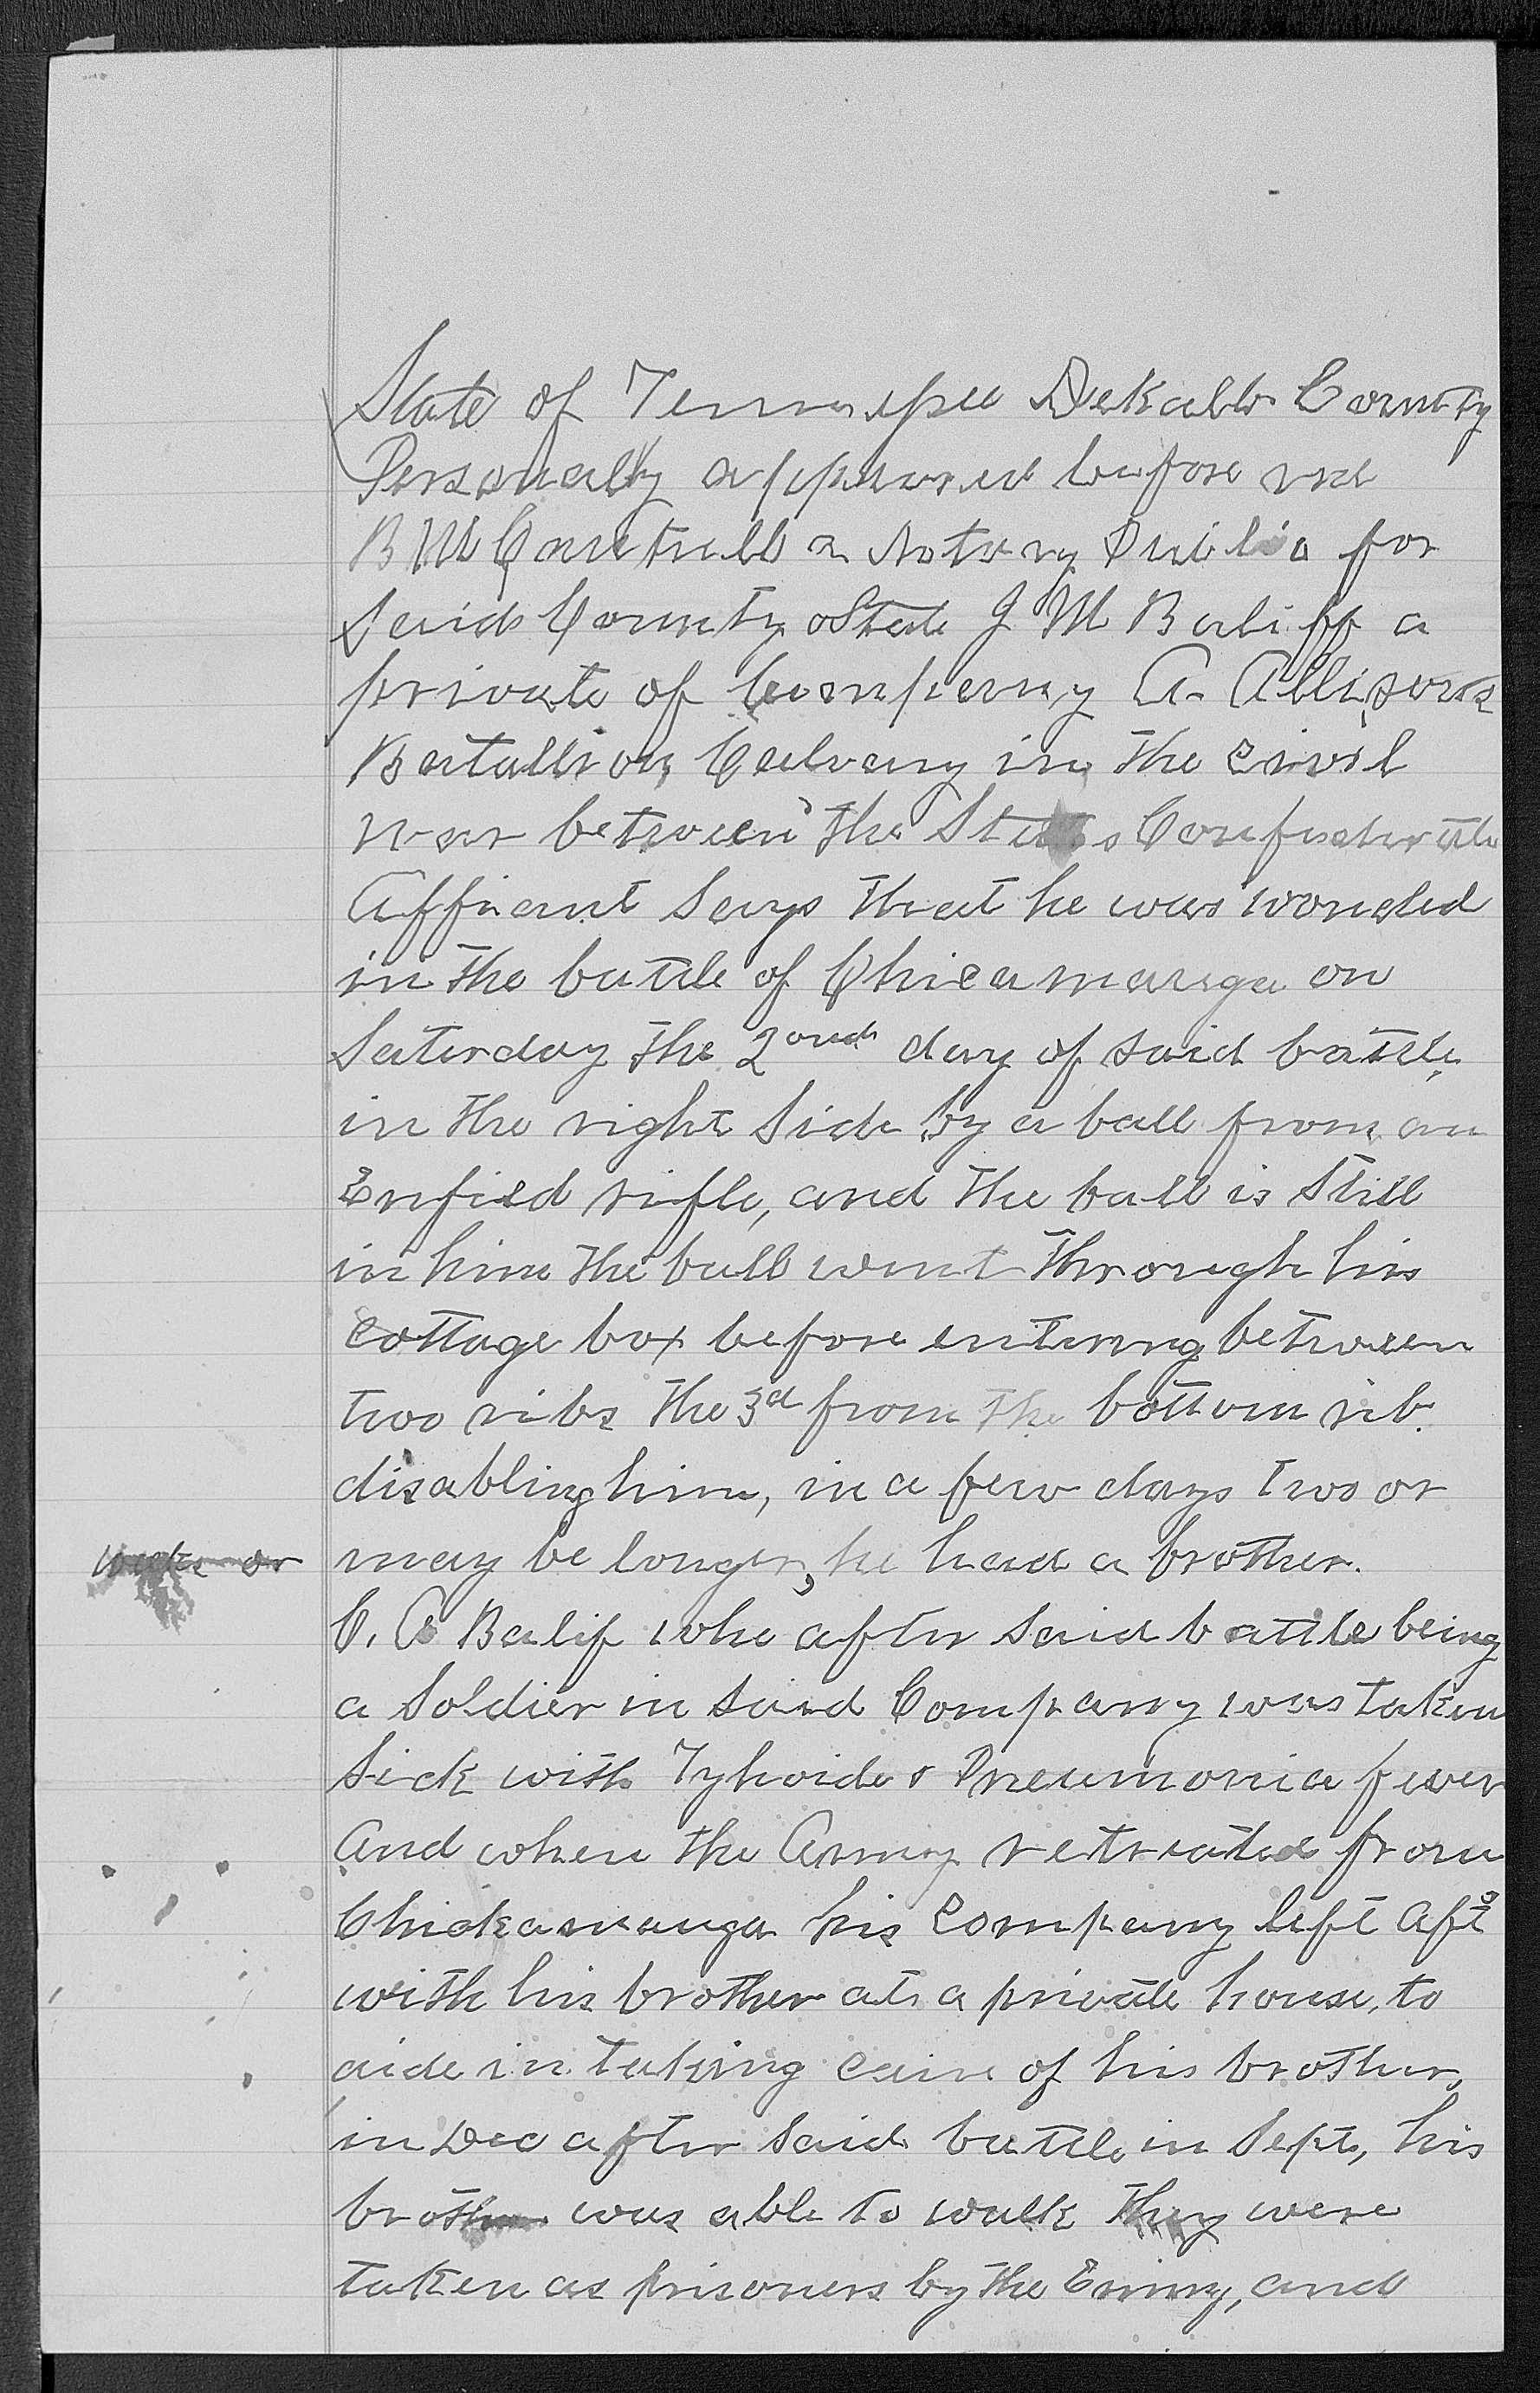 State of Tennessee Dekalb County
Personally appeared before me
B M Cantrell a Notary Public for
said County & State J M Baliff a
private of Company A. Allisons
Batallion Calvary in the Civil
war between the States Confederate
Affiant says that he was wonded
in the battle of Chicamauga on
Saturday the 2ond day of said battle,
in the right side by a ball from an
Enfield rifle, and the ball is still
in him the ball went through his
Cottage box before entering between
two ribs the 3d from the bottom rib.
disabling him, in a few days two or
weeks or may be longer, he had a brother.
C. A Balif who after said battle being
a Soldier in said Company was taken
sick with Tyhoide & Pneumonia fever
and when the Army retreated from
Chickamauga his Company left Aft
with his brother at a private house, to
aide in taking care of his brother,
in Dec after said battle in Sept, his
brother was able to walk they were
taken as prisoners by the Enimy, and